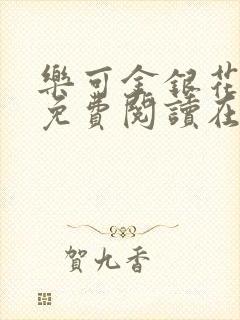 樂可金銀花
免費閱讀在
賀九香